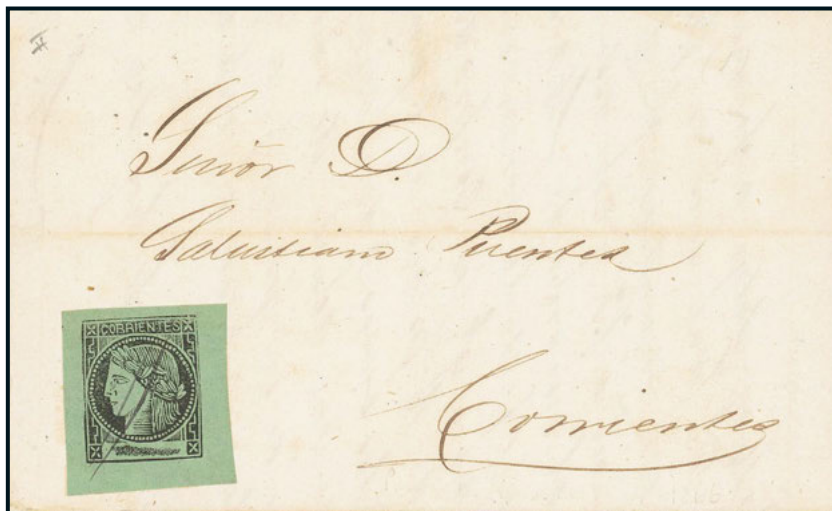 Señor D.
Salustiano Puentes
CORRIENTES
Corrientes